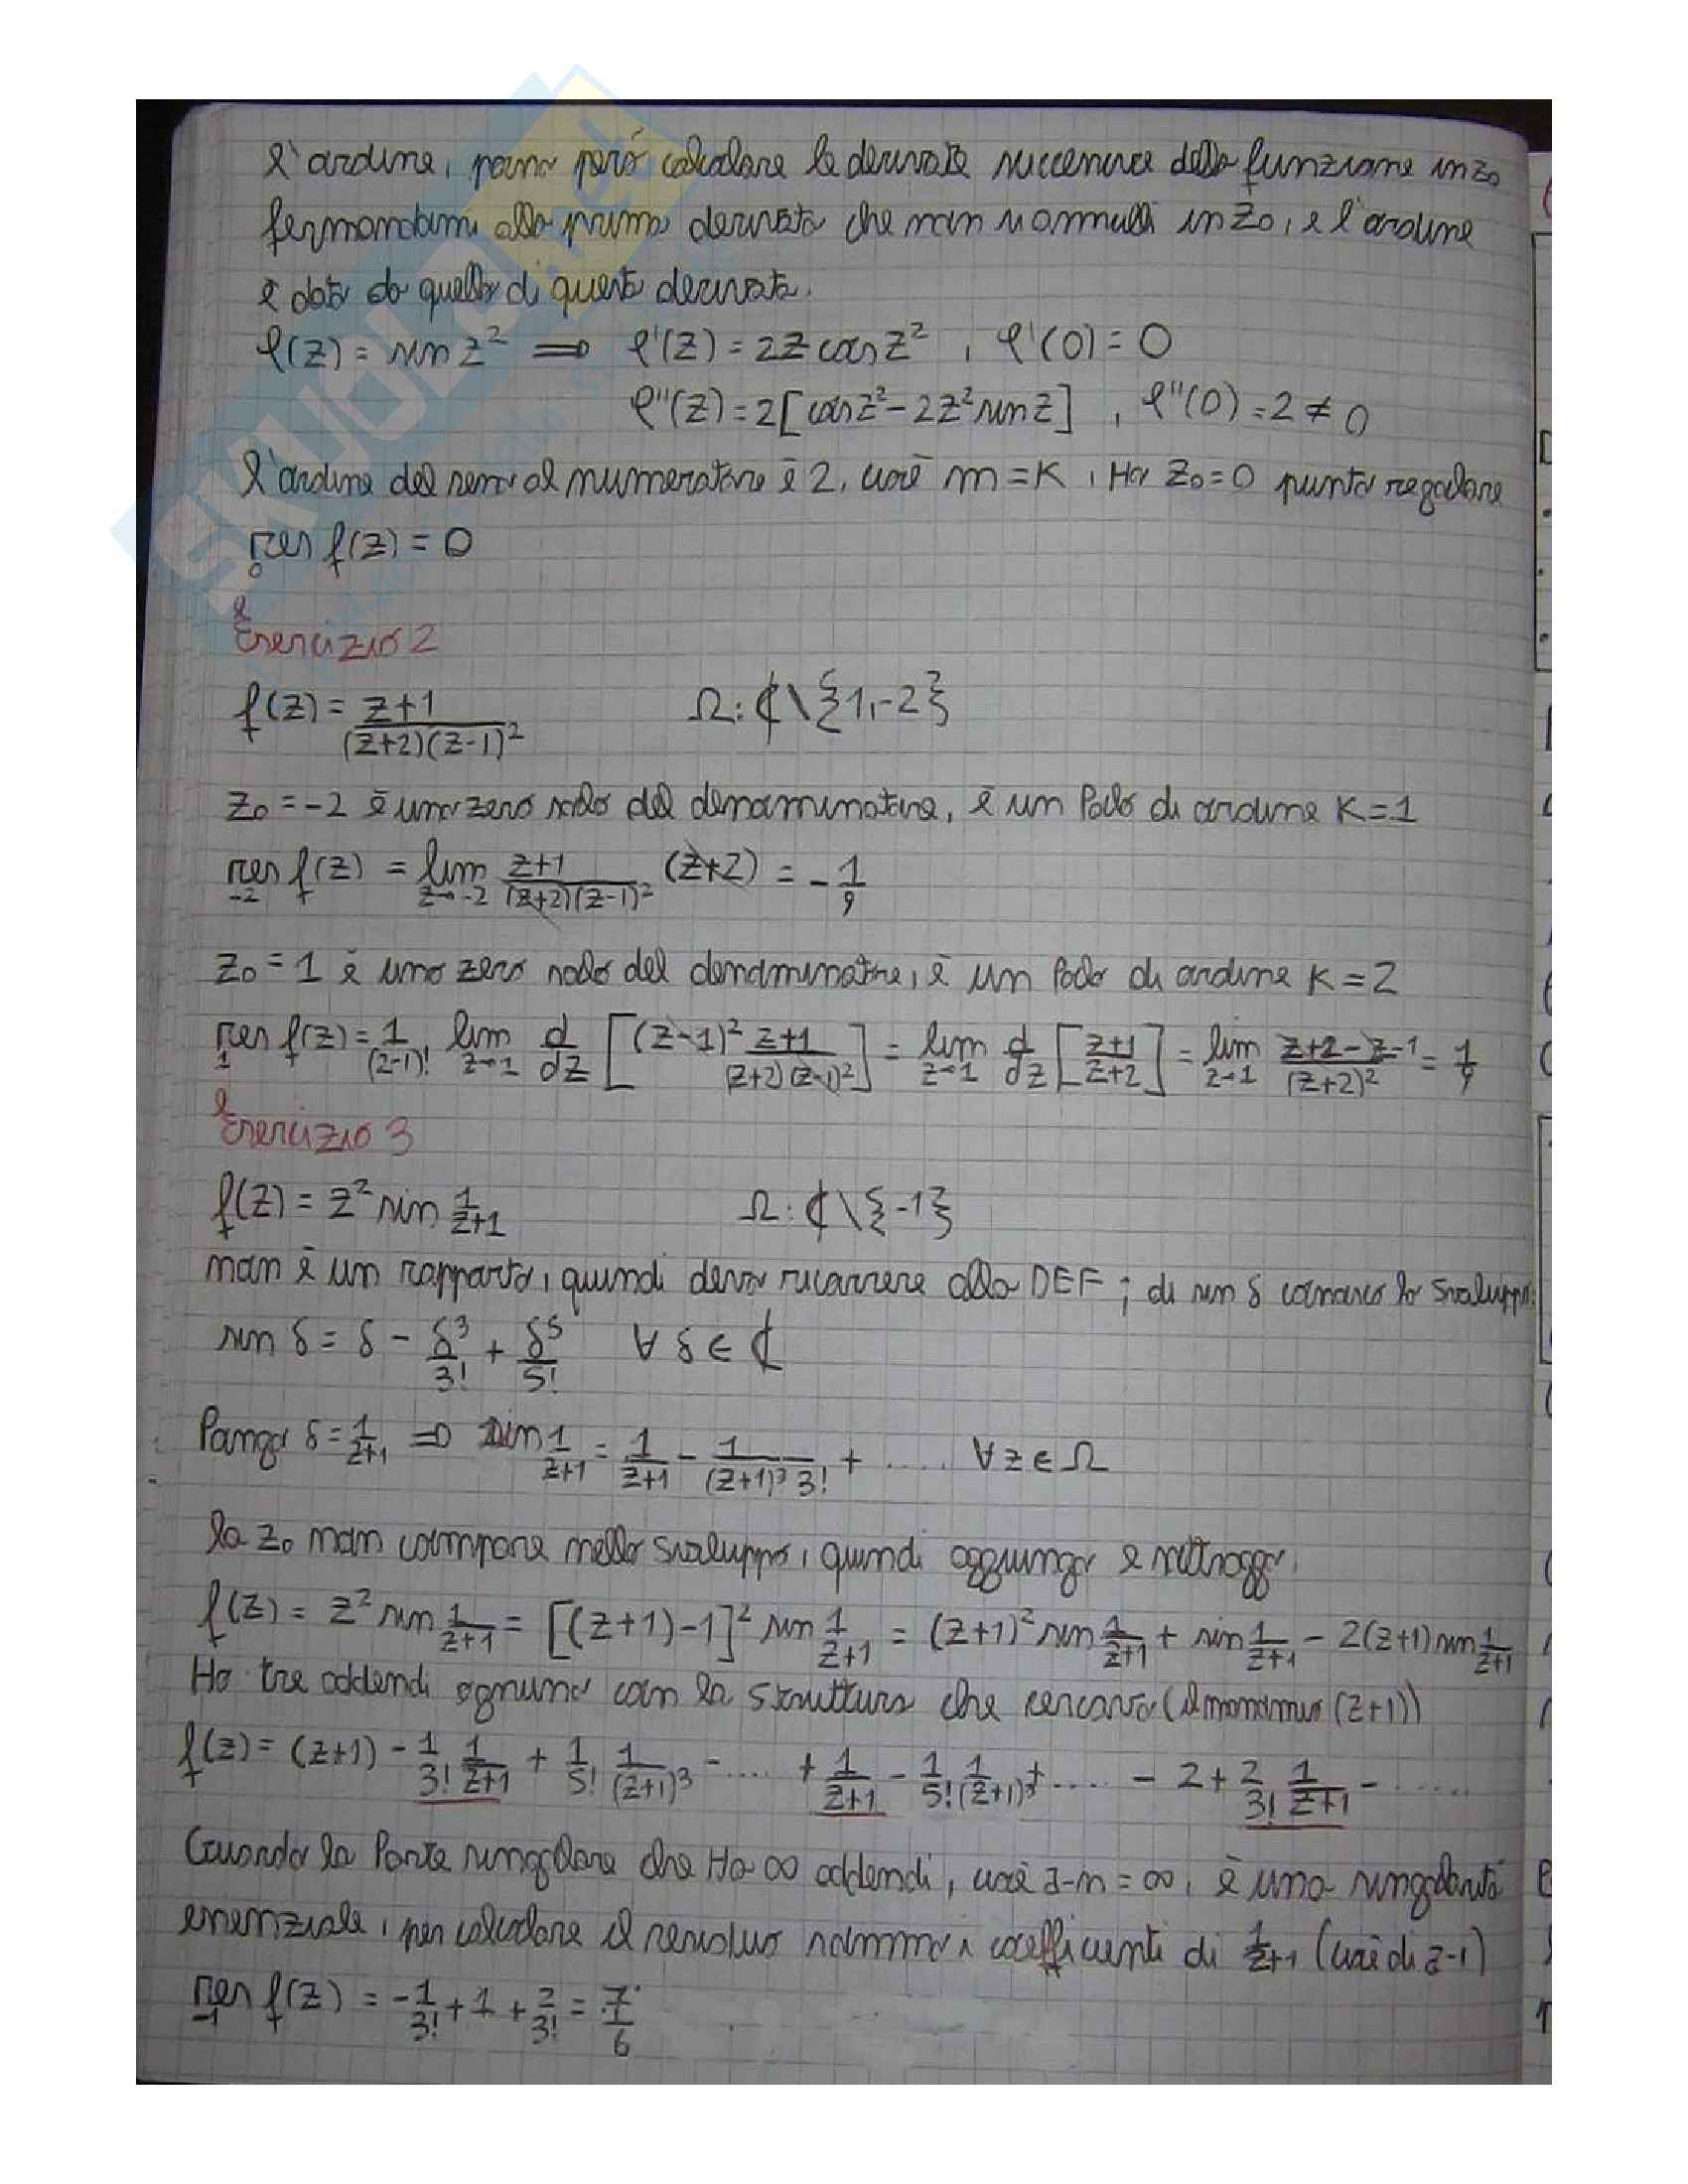 l'ordine, posso però calcolare le derivate successive della funzione in z₀
fermandomi alla prima derivata che non si annulli in z₀, e l'ordine
è dato da quello di questa derivata.
φ(z) = sin z² ⇒ φ'(z) = 2z cos z² , φ'(0) = 0
φ''(z) = 2[cos z² - 2z² sin z] , φ''(0) = 2 ≠ 0
l'ordine del seno al numeratore è 2, cioè m = K , Ho z₀ = 0 punto regolare
res₀ f(z) = 0
Esercizio 2
f(z) = (z+1)/((z+2)(z-1)²) Ω: ℂ\{1,-2}
z₀ = -2 è uno zero solo del denominatore, è un Polo di ordine K=1
res₋₂ f(z) = lim z→-2 (z+1)/((z+2)(z-1)²) (z+2) = -1/9
z₀ = 1 è uno zero solo del denominatore, è un Polo di ordine K=2
res₁ f(z) = 1/(2-1)! · lim z→1 d/dz [(z-1)² (z+1)/((z+2)(z-1)²)] = lim z→1 d/dz [(z+1)/(z+2)] = lim z→1 (z+2-z-1)/(z+2)² = 1/9
Esercizio 3
f(z) = z² sin 1/(z+1) Ω: ℂ\{-1}
non è un rapporto, quindi devo ricorrere alla DEF; di sin δ conosco lo sviluppo:
sin δ = δ - δ³/3! + δ⁵/5! ∀ δ ∈ ℂ
Pongo δ = 1/(z+1) ⇒ sin 1/(z+1) = 1/(z+1) - 1/((z+1)³ 3!) + .... ∀ z ∈ Ω
la z₀ non compare nello sviluppo, quindi aggiungo e sottraggo.
f(z) = z² sin 1/(z+1) = [(z+1)-1]² sin 1/(z+1) = (z+1)² sin 1/(z+1) + sin 1/(z+1) - 2(z+1) sin 1/(z+1)
Ho tre addendi ognuno con la struttura che cercavo (il monomio (z+1))
f(z) = (z+1) - 1/3! 1/(z+1) + 1/5! 1/(z+1)³ - .... + 1/(z+1) - 1/5! 1/(z+1)³ + .... - 2 + 2/3! 1/(z+1) - ......
Guardo la Parte singolare che Ho ∞ addendi, cioè a-n = ∞, è una singolarità
essenziale, per calcolare il residuo sommo i coefficienti di 1/(z+1) (cioè di a-1)
res₋₁ f(z) = -1/3! + 1 + 2/3! = 7/6